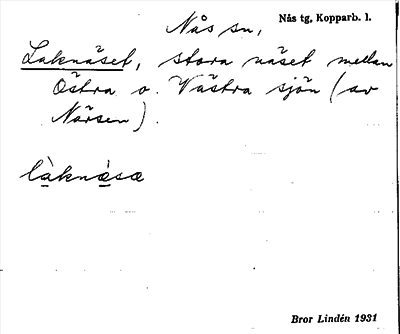 Nås sn, Nås tg, Kopparb. l.
Laknäset, stora näset mellan
Östra o. Västra sjön (av
Närsen).
làknæ̀sæ
Bror Lindén 1931